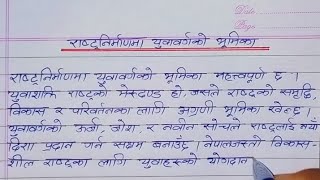 Date
Page
राष्ट्रनिर्माणमा युवावर्गको भूमिका
राष्ट्रनिर्माणमा युवावर्गको भूमिका महत्त्वपूर्ण छ ।
युवाशक्ति राष्ट्रको मेरुदण्ड हो, जसले राष्ट्रको समृद्धि,
विकास र परिवर्तनका लागि अग्रणी भूमिका खेल्छ ।
युवावर्गको ऊर्जा, जोश र नवीन सोचले राष्ट्रलाई नयाँ
दिशा प्रदान गर्न सक्षम बनाउँछ । नेपालजस्तो विकास-
शील राष्ट्रका लागि युवाहरूको योगदान